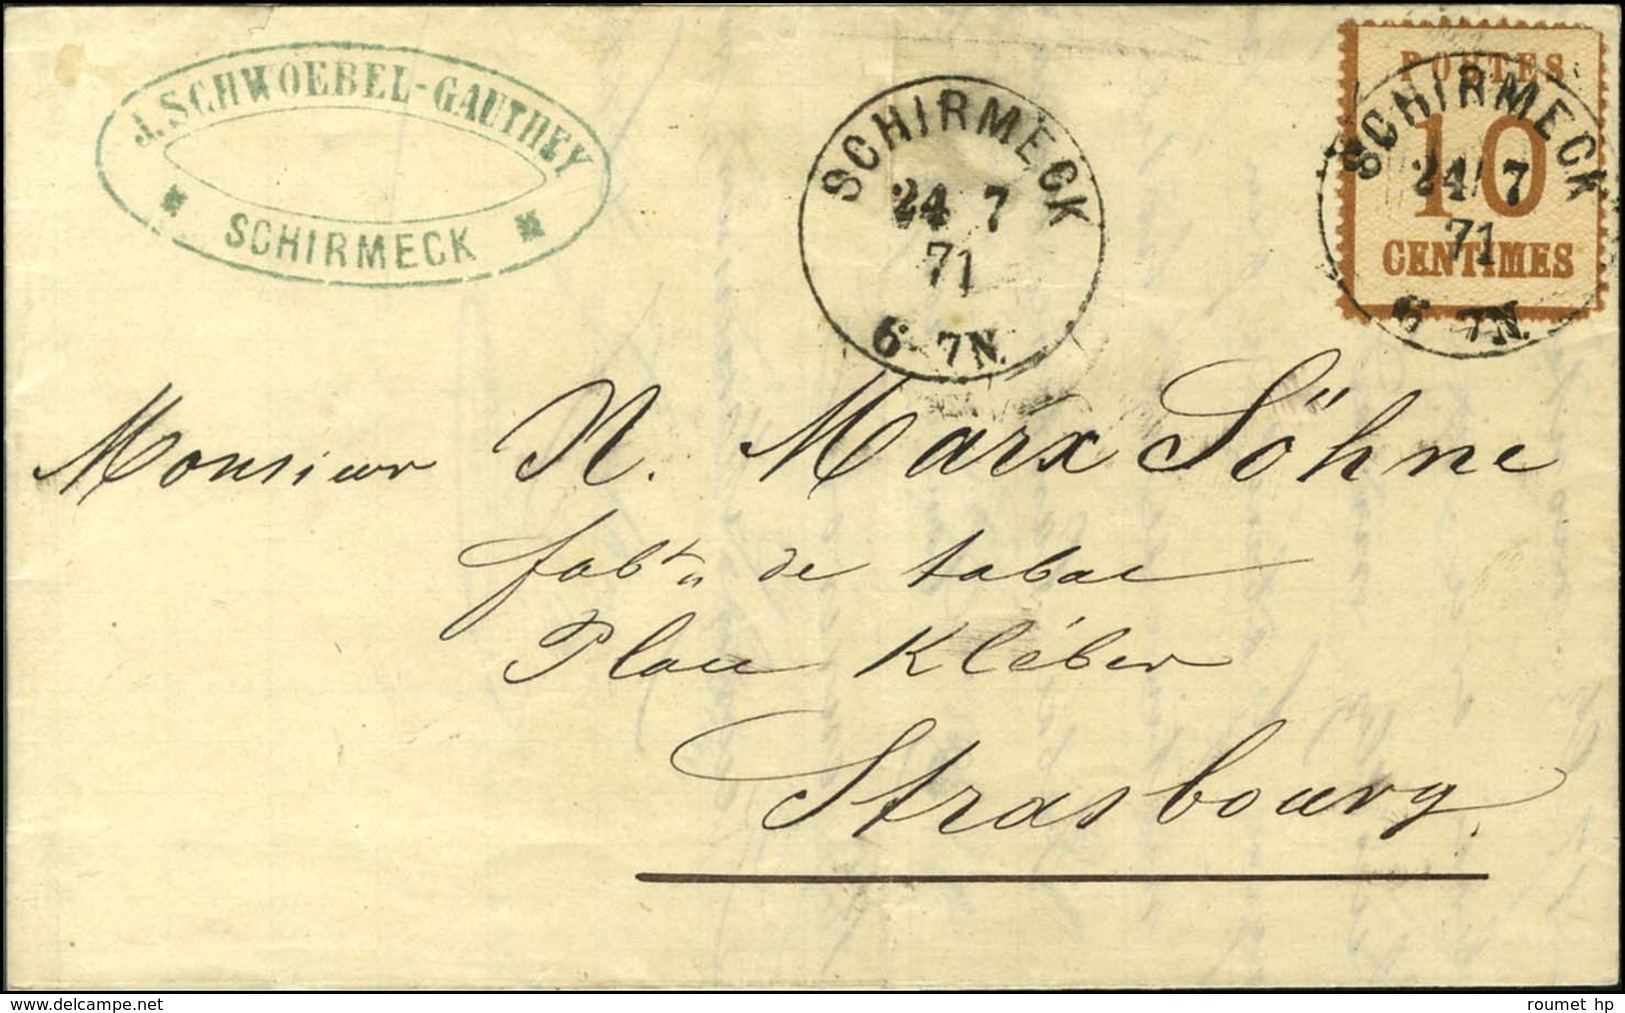 J. SCHWOEBEL-GAUTHEY
SCHIRMECK
SCHIRMECK
24 7
71
6-7N.
POSTES
10
CENTIMES
SCHIRMECK
24 7
71
6-7N.
Monsieur N. Marx Söhne
fabt de tabac
Place Kléber
Strasbourg
www.delcampe.net
roumet hp